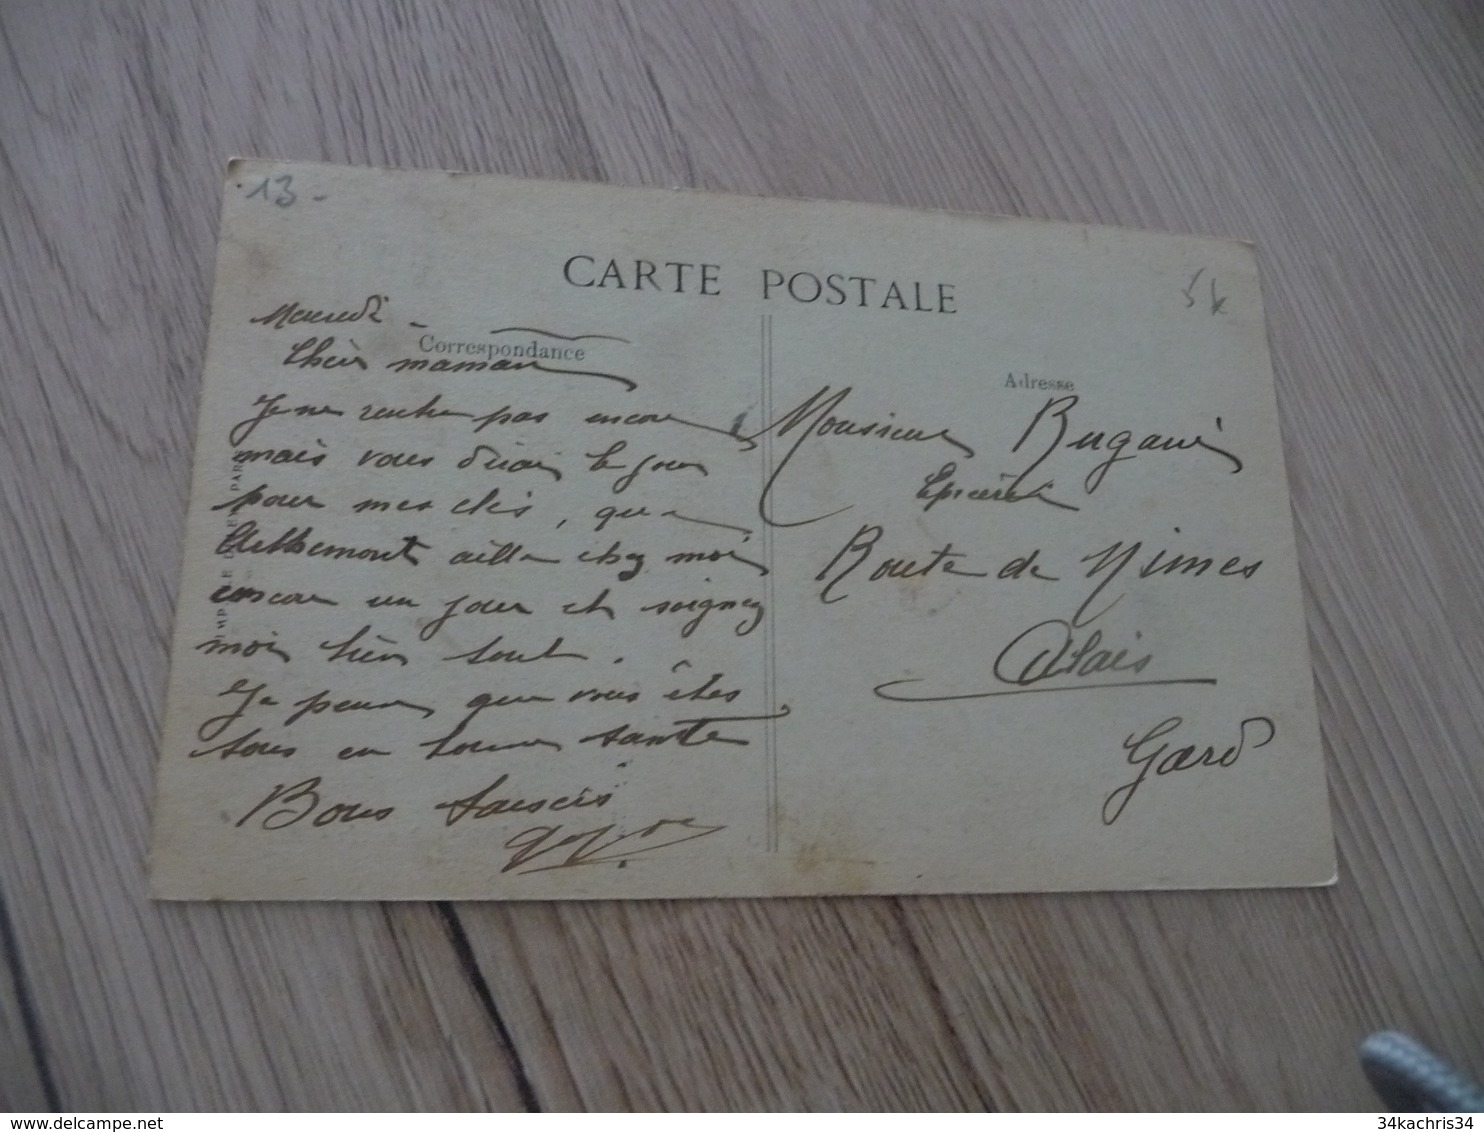 13 -
CARTE POSTALE
Correspondance
Adresse
Chère maman
Je ne rentre pas encore
mais vous dirai le jour
pour mes clés, que
aille chez moi
encore un jour et soignez
moi bien tout.
Je pense que vous êtes
tous en bonne santé
Bons baisers
Monsieur
Epicerie
Route de Nimes
Alais
Gard
34kachris34